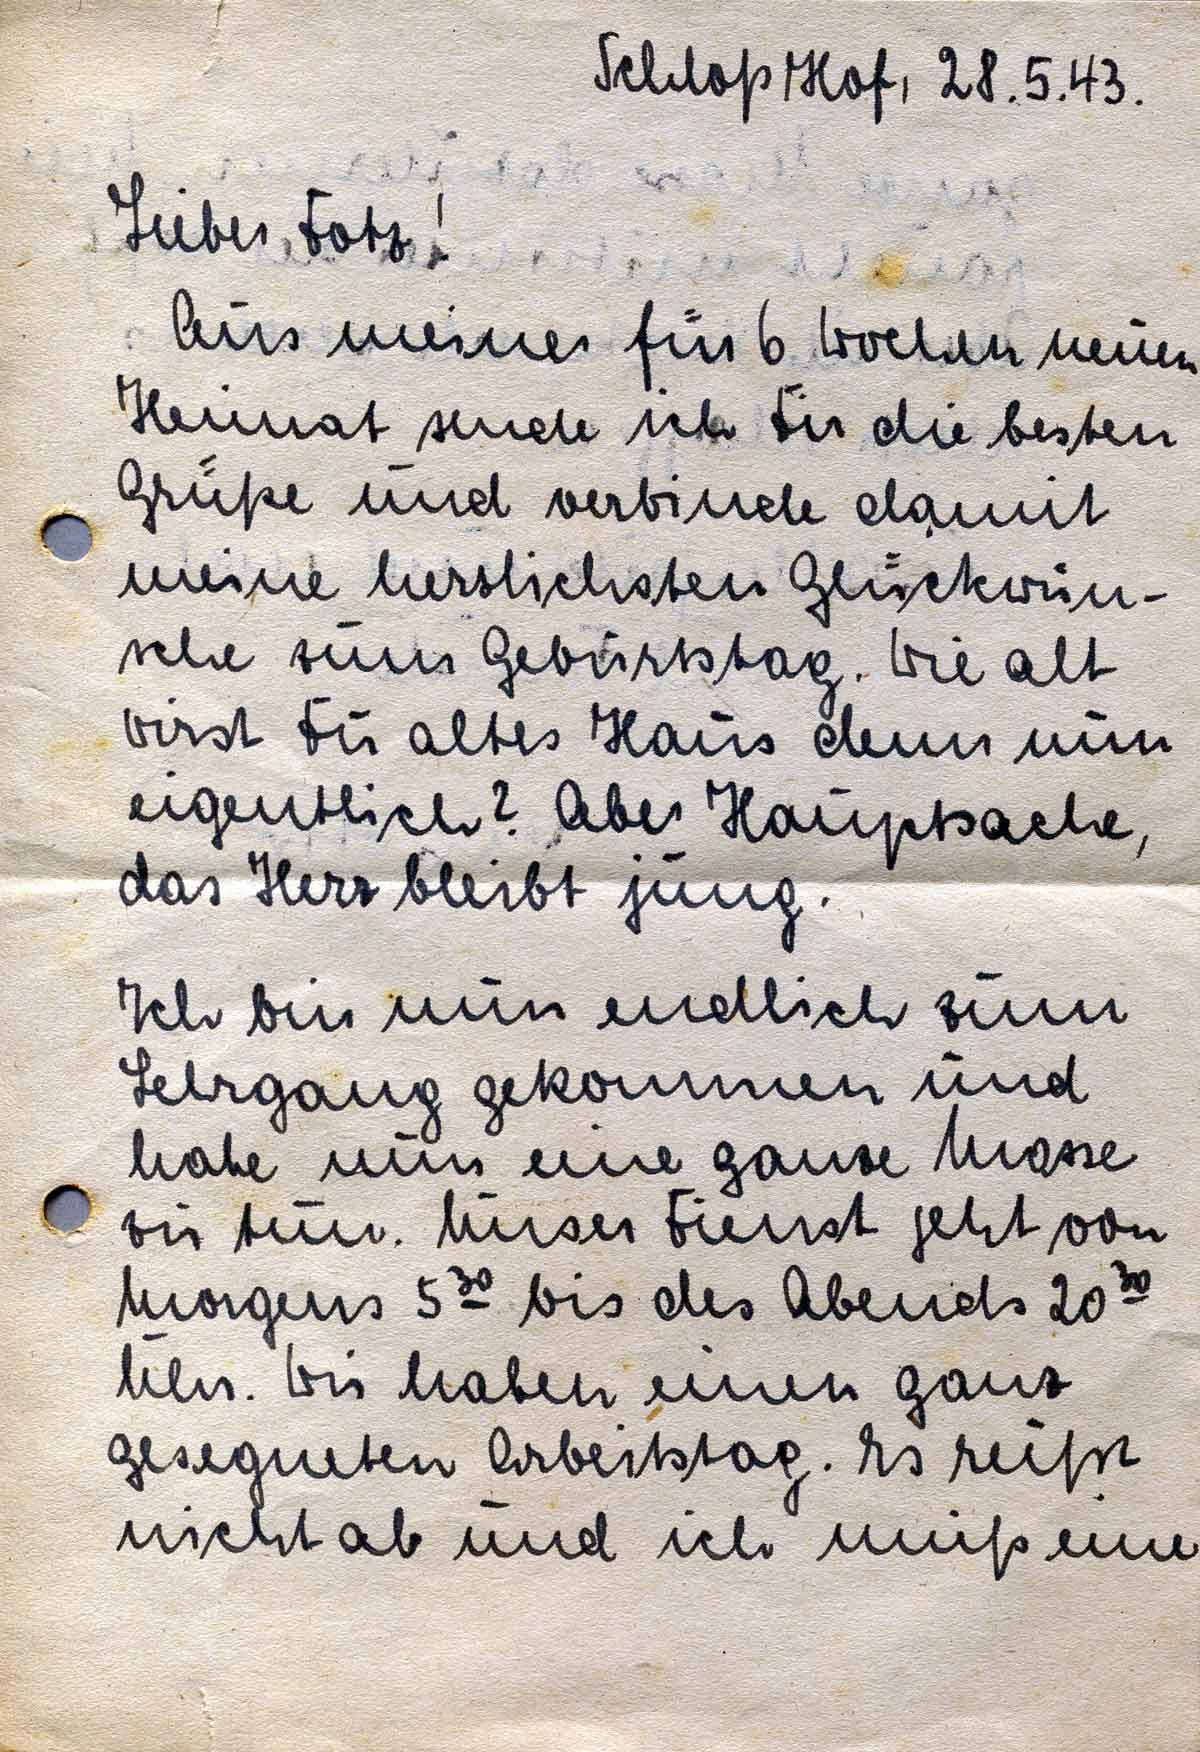 Schloß Hof, 28.5.43.
Lieber
Aus meiner für 6 Wochen neuen
Heimat sende ich Dir die besten
Grüße und verbinde damit
meine herzlichsten Glückwün-
sche zum Geburtstag. Wie alt
wirst Du altes Haus denn nun
eigentlich? Aber Hauptsache,
das Herz bleibt jung.
Ich bin nun endlich zum
Lehrgang gekommen und
habe nun eine ganze Masse
zu tun. Unser Dienst geht von
Morgens 5³⁰ bis des Abends 20³⁰
Uhr. Wir haben einen ganz
gesegneten Arbeitstag. Es reißt
nicht ab und ich muß eine